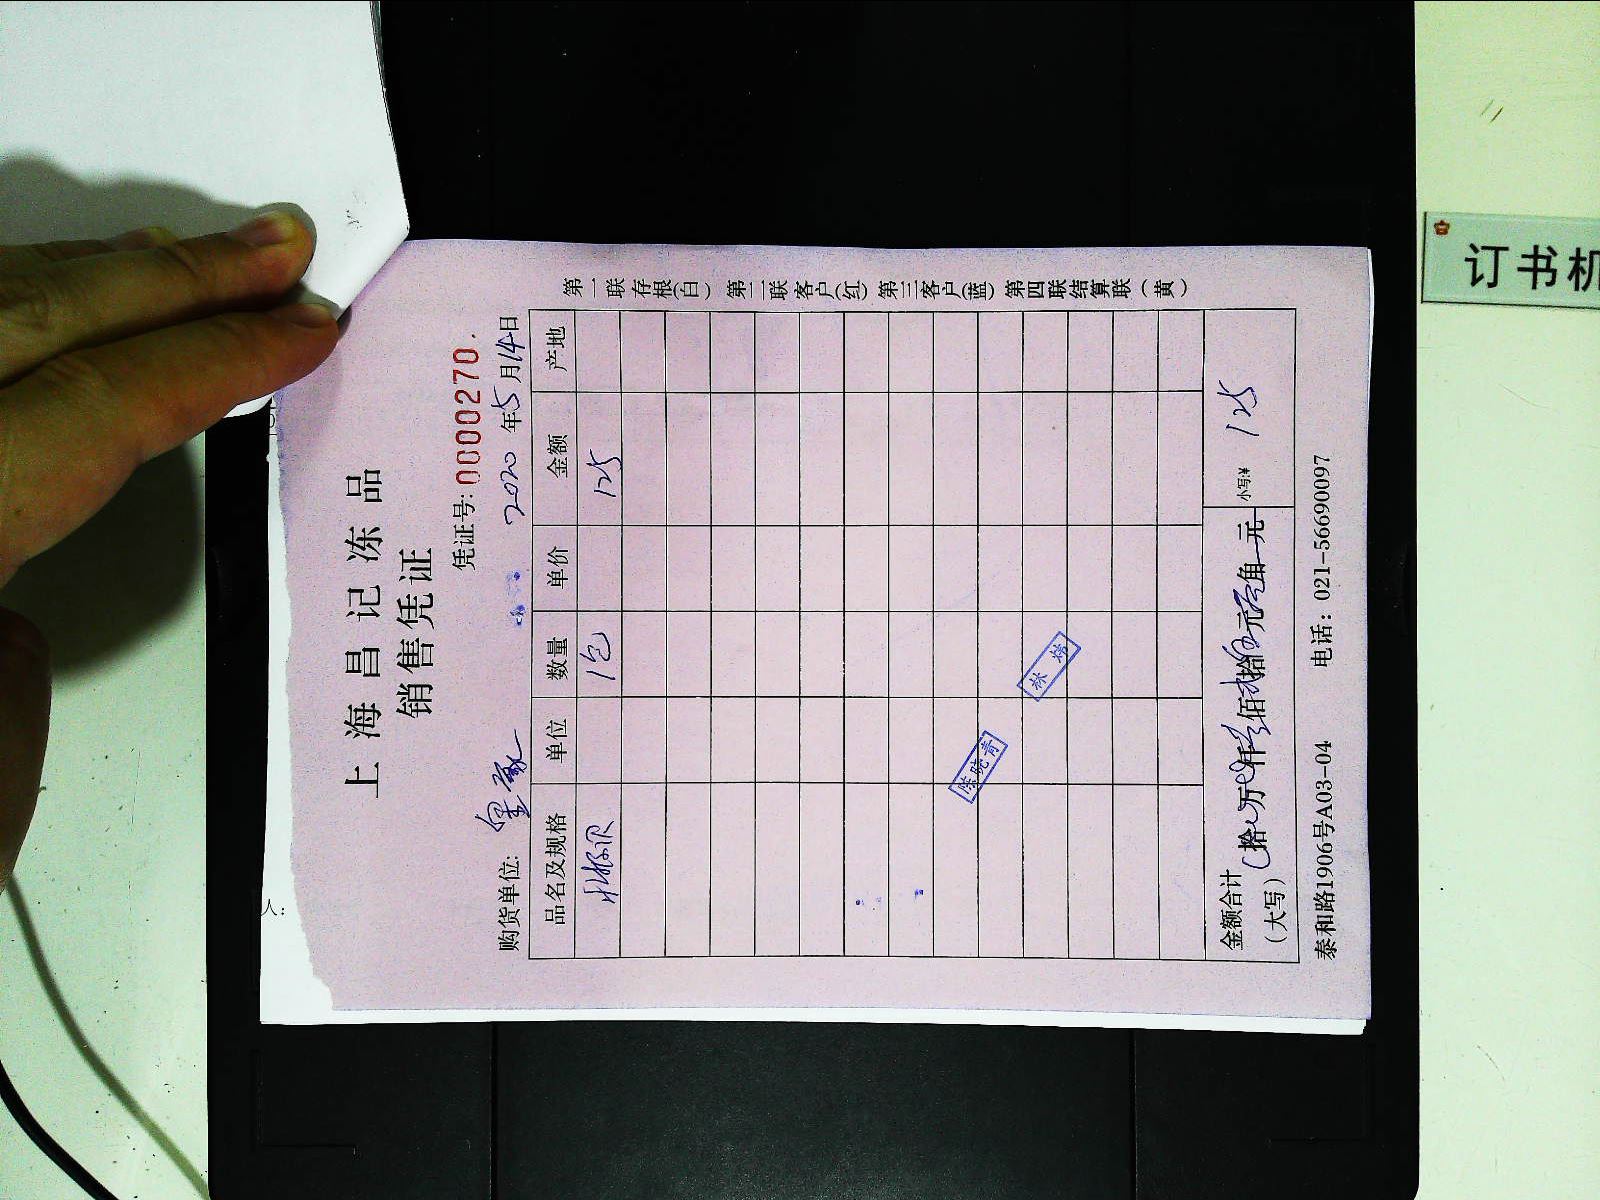 上海昌记冻品
销售凭证
凭证号: 0000270
购货单位: 2020年5月14日
品名及规格 单位 数量 单价 金额 产地
1包 125
陈晓青
林
金额合计
(大写) 拾 万 仟 佰 拾 元 角 元 小写:¥ 125
泰和路1906号A03-04 电话: 021-56690097
第一联存根(白) 第二联客户(红) 第三客户(蓝) 第四联结算联(黄)
人:
订书机